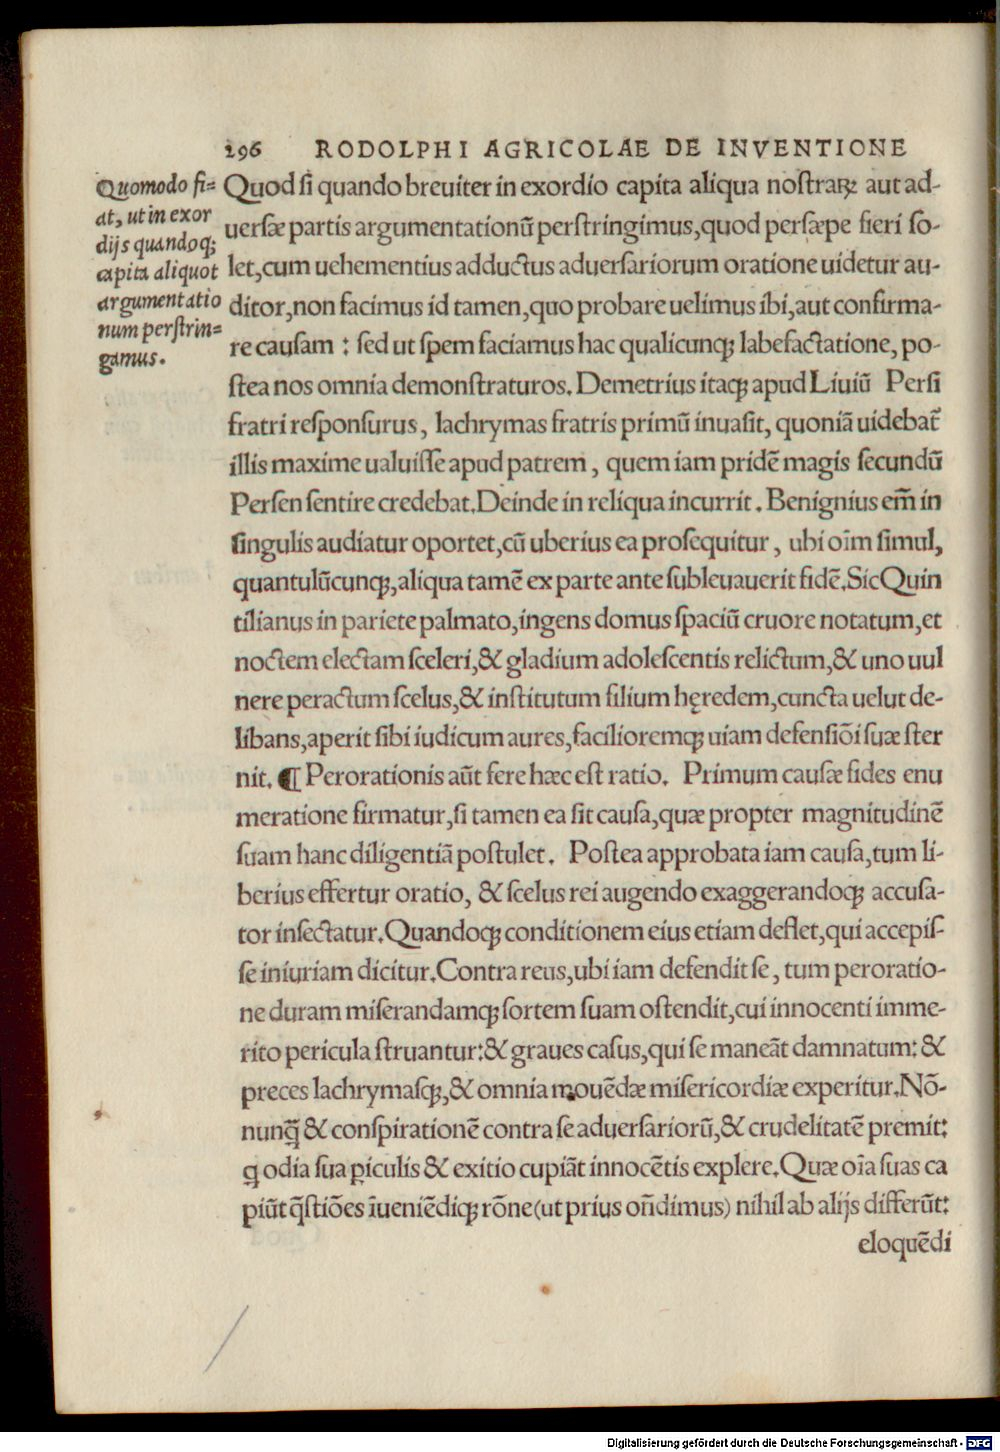 296 RODOLPHI AGRICOLAE DE INVENTIONE
Quomodo fi=
at, ut in exor
dijs quandoq;
capita aliquot
argumentatio
num perſtrin=
gamus.
Quod ſi quando breuiter in exordio capita aliqua noſtraꝝ aut ad-
uerſæ partis argumentationũ perſtringimus, quod perſæpe fieri ſo-
let, cum uehementius adductus aduerſariorum oratione uidetur au-
ditor, non facimus id tamen, quo probare uelimus ibi, aut confirma-
re cauſam : ſed ut ſpem faciamus hac qualicunq; labefactatione, po-
ſtea nos omnia demonſtraturos. Demetrius itaq; apud Liuiũ Perſi
fratri reſponſurus, lachrymas fratris primũ inuaſit, quoniã uidebat̃
illis maxime ualuiſſe apud patrem, quem iam pridẽ magis ſecundũ
Perſen ſentire credebat. Deinde in reliqua incurrit. Benignius em̃ in
ſingulis audiatur oportet, cũ uberius ea proſequitur, ubi oĩm ſimul,
quantulũcunq;, aliqua tamẽ ex parte ante ſubleuauerit fidẽ. Sic Quin
tilianus in pariete palmato, ingens domus ſpaciũ cruore notatum, et
noctem electam ſceleri, & gladium adoleſcentis relictum, & uno uul
nere peractum ſcelus, & inſtitutum filium hęredem, cuncta uelut de-
libans, aperit ſibi iudicum aures, facilioremq; uiam defenſiõi ſuæ ſter
nit. ¶ Perorationis aũt fere hæc eſt ratio. Primum cauſæ fides enu
meratione firmatur, ſi tamen ea ſit cauſa, quæ propter magnitudinẽ
ſuam hanc diligentiã poſtulet. Poſtea approbata iam cauſa, tum li-
berius effertur oratio, & ſcelus rei augendo exaggerandoq; accuſa-
tor inſectatur. Quandoq; conditionem eius etiam deflet, qui accepiſ-
ſe iniuriam dicitur. Contra reus, ubi iam defendit ſe, tum peroratio-
ne duram miſerandamq; ſortem ſuam oſtendit, cui innocenti imme-
rito pericula ſtruantur: & graues caſus, qui ſe maneãt damnatum: &
preces lachrymaſq;, & omnia mouẽdæ miſericordiæ experitur. Nõ-
nunꝗ̃ & conſpirationẽ contra ſe aduerſariorũ, & crudelitatẽ premit:
ꝗ odia ſua ꝑiculis & exitio cupiãt innocẽtis explere. Quæ oĩa ſuas ca
piũt q̃ſtiões ĩueniẽdiq; rõne (ut prius oñdimus) nihil ab alijs differũt:
eloquẽdi
Digitalisierung gefördert durch die Deutsche Forschungsgemeinschaft - DFG